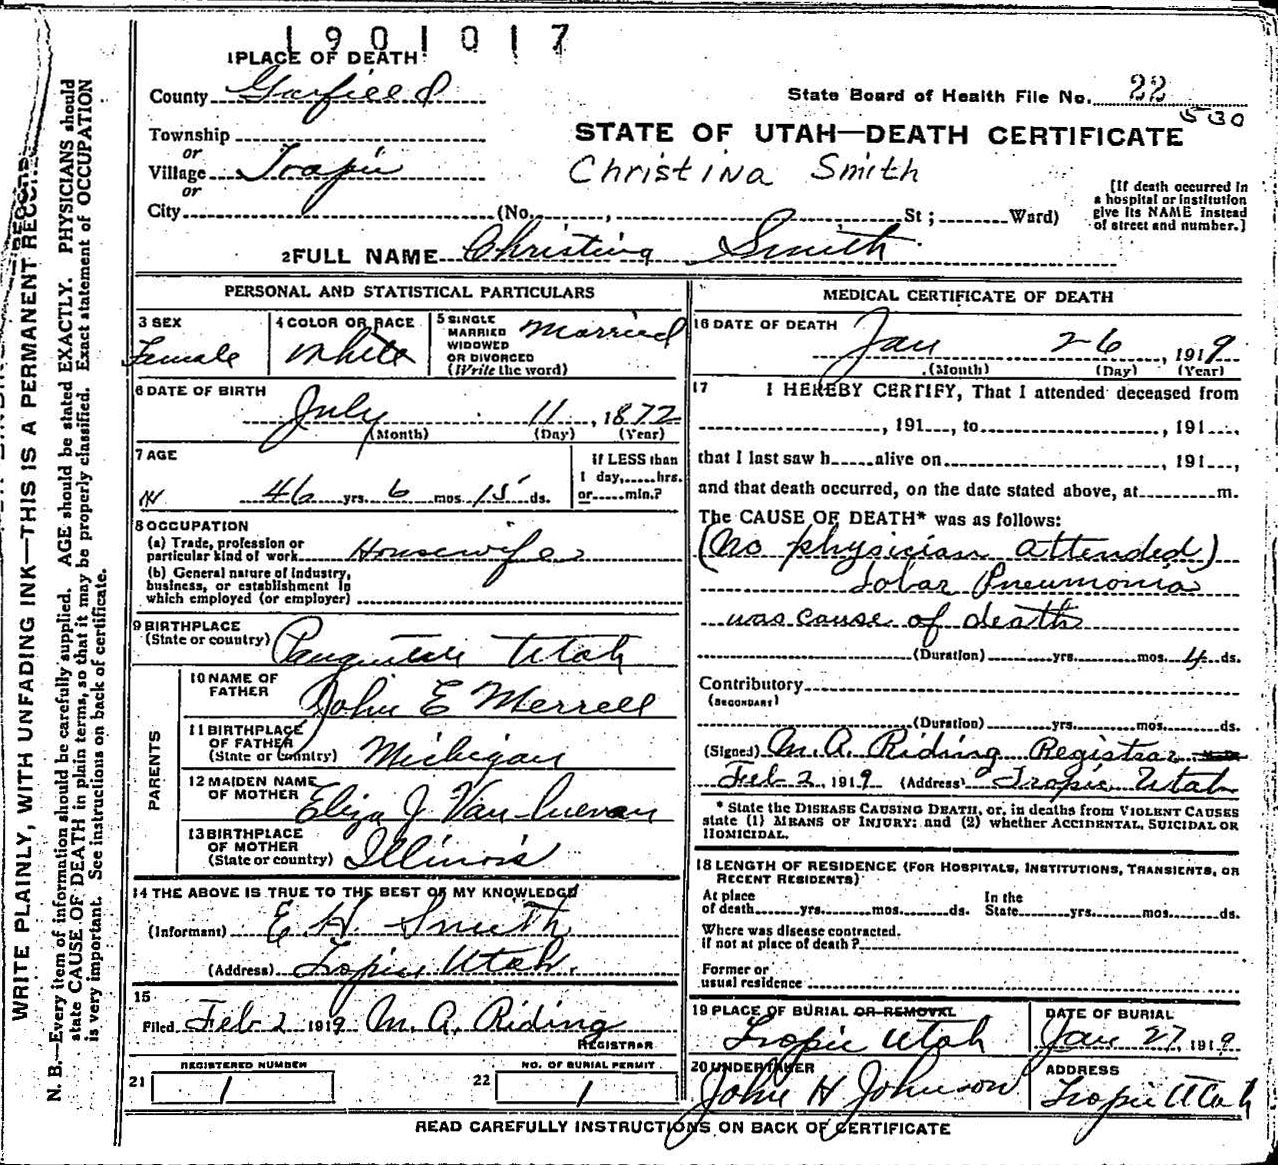 1901017
1 PLACE OF DEATH
County Garfield
State Board of Health File No. 22
530
Township
or
Village Tropic
or
STATE OF UTAH—DEATH CERTIFICATE
Christina Smith
City (No. , St ; Ward)
[If death occurred in
a hospital or institution
give its NAME instead
of street and number.]
2 FULL NAME Christina Smith
PERSONAL AND STATISTICAL PARTICULARS
3 SEX
Female
4 COLOR OR RACE
White
5 SINGLE
MARRIED
WIDOWED
OR DIVORCED
(Write the word)
Married
6 DATE OF BIRTH
July 11, 1872
(Month) (Day) (Year)
7 AGE
46 yrs. 6 mos. 15 ds.
If LESS than
1 day, hrs.
or min.?
8 OCCUPATION
(a) Trade, profession or
particular kind of work Housewife
(b) General nature of industry,
business, or establishment in
which employed (or employer)
9 BIRTHPLACE
(State or country) Utah
PARENTS
10 NAME OF
FATHER John E Merrell
11 BIRTHPLACE
OF FATHER
(State or Country) Michigan
12 MAIDEN NAME
OF MOTHER Eliza J. Van
13 BIRTHPLACE
OF MOTHER
(State or country) Illinois
14 THE ABOVE IS TRUE TO THE BEST OF MY KNOWLEDGE
(Informant) E H. Smith
(Address) Tropic Utah.
15
Filed Feb 2 1919 M. A. Riding
REGISTRAR
REGISTERED NUMBER
21 1
NO. OF BURIAL PERMIT
22 1
MEDICAL CERTIFICATE OF DEATH
16 DATE OF DEATH
Jan 26, 1919
(Month) (Day) (Year)
17 I HEREBY CERTIFY, That I attended deceased from
, 191 , to , 191 ,
that I last saw h alive on , 191 ,
and that death occurred, on the date stated above, at m.
The CAUSE OF DEATH* was as follows:
(No physician attended)
Lobar Pneumonia
was cause of death
(Duration) yrs. mos. 4 ds.
Contributory
(SECONDARY)
(Duration) yrs. mos. ds.
(Signed) M. A. Riding Registrar
Feb 2, 1919 (Address) Tropic Utah
* State the DISEASE CAUSING DEATH, or, in deaths from VIOLENT CAUSES
state (1) MEANS OF INJURY; and (2) whether ACCIDENTAL, SUICIDAL OR
HOMICIDAL.
18 LENGTH OF RESIDENCE (FOR HOSPITALS, INSTITUTIONS, TRANSIENTS, OR
RECENT RESIDENTS)
At place
of death yrs. mos. ds.
In the
State yrs. mos. ds.
Where was disease contracted.
if not at place of death?
Former or
usual residence
19 PLACE OF BURIAL OR REMOVAL
Tropic Utah
DATE OF BURIAL
Jan 27, 1919
20 UNDERTAKER
John H Johnson
ADDRESS
Tropic Utah
READ CAREFULLY INSTRUCTIONS ON BACK OF CERTIFICATE
WRITE PLAINLY, WITH UNFADING INK—THIS IS A PERMANENT RECORD
N. B.—Every item of information should be carefully supplied. AGE should be stated EXACTLY. PHYSICIANS should
state CAUSE OF DEATH in plain terms, so that it may be properly classified. Exact statement of OCCUPATION
is very important. See instructions on back of certificate.